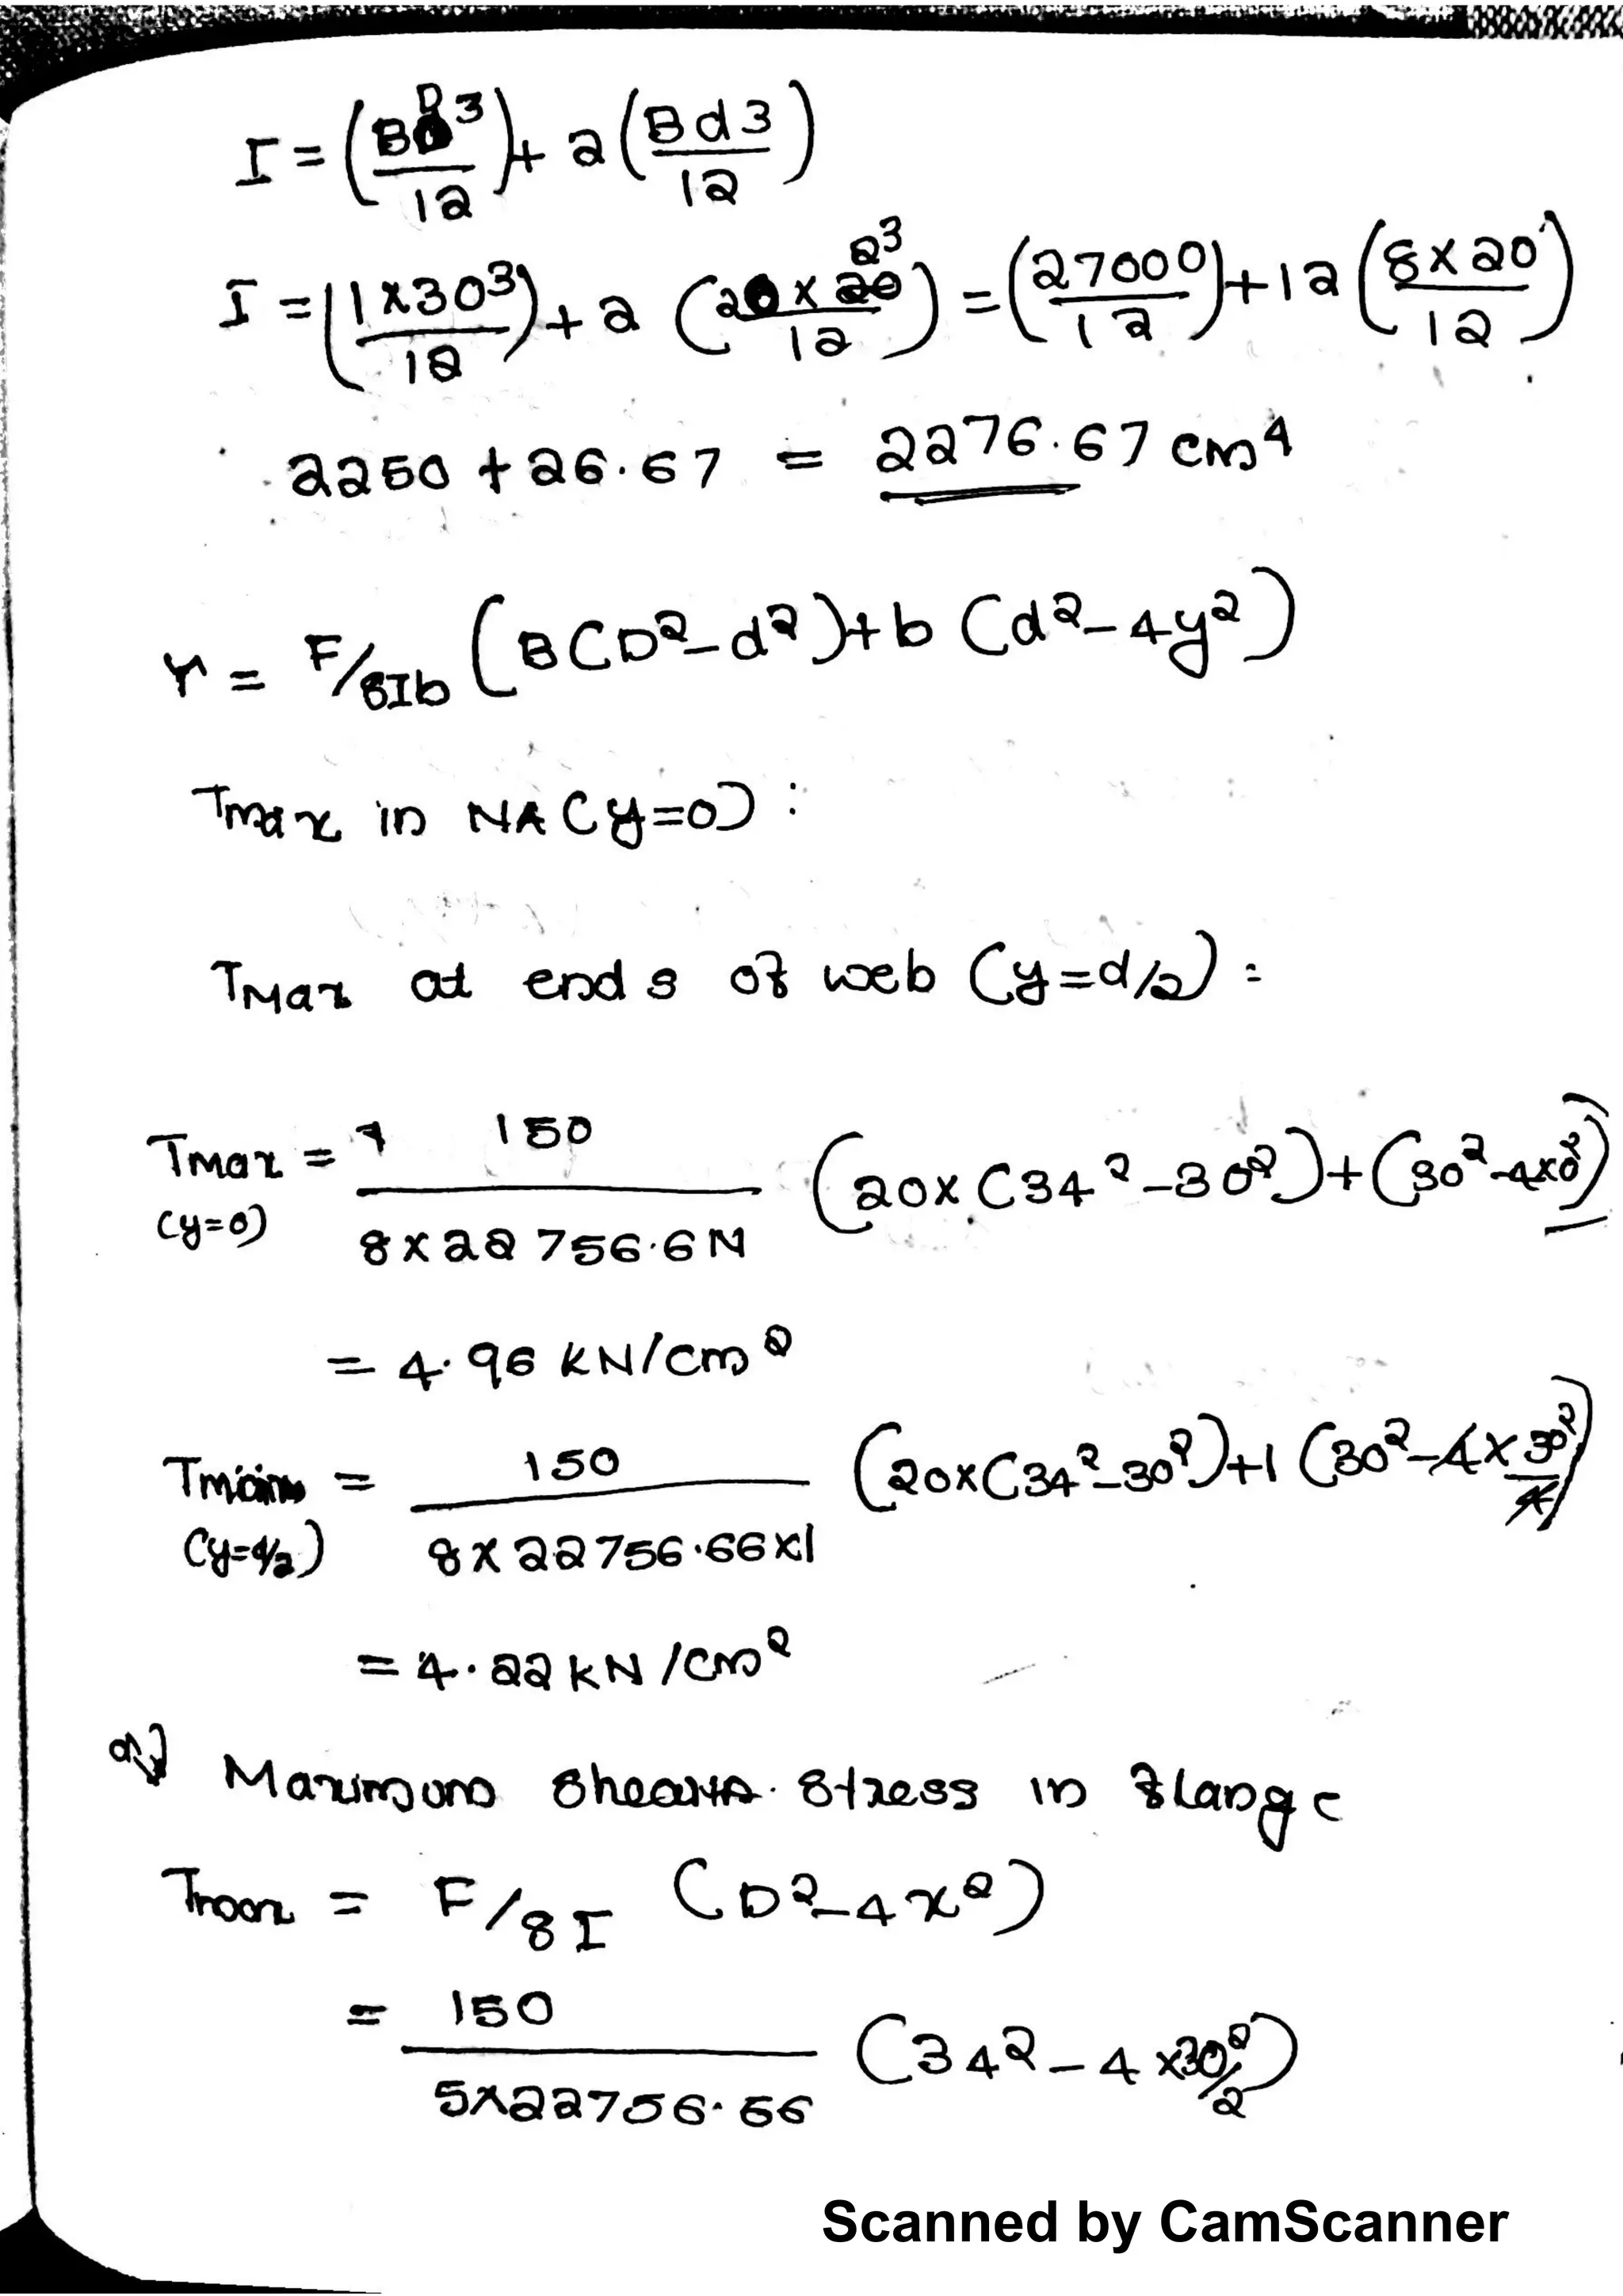 I = (BD³/12) + 2(Bd3/12)
I = (1×30³/12) + 2(20×2³/12) = (27000/12) + 12(8×20/12)
2250 + 26.67 = 2276.67 cm⁴
τ = F/8Ib (B(D²-d²)+b (d²-4y²)
Tmax in NA (y=0) :
Tmax at ends of web (y=d/2) :
Tmax = 150 / 8×22756.6 (20×(34²-30²)+(30²-4×0²)
(y=0)
= 4.96 kN/cm²
Tmin = 150 / 8×22756.66×1 (20×(34²-30²)+1 (30²-4×30²/4)
(y=d/2)
= 4.22 kN/cm²
Maximum Stress in flange
Tmax = F/8I (D²-4x²)
= 150 / 5×22756.66 (34²-4×30²/2)
Scanned by CamScanner